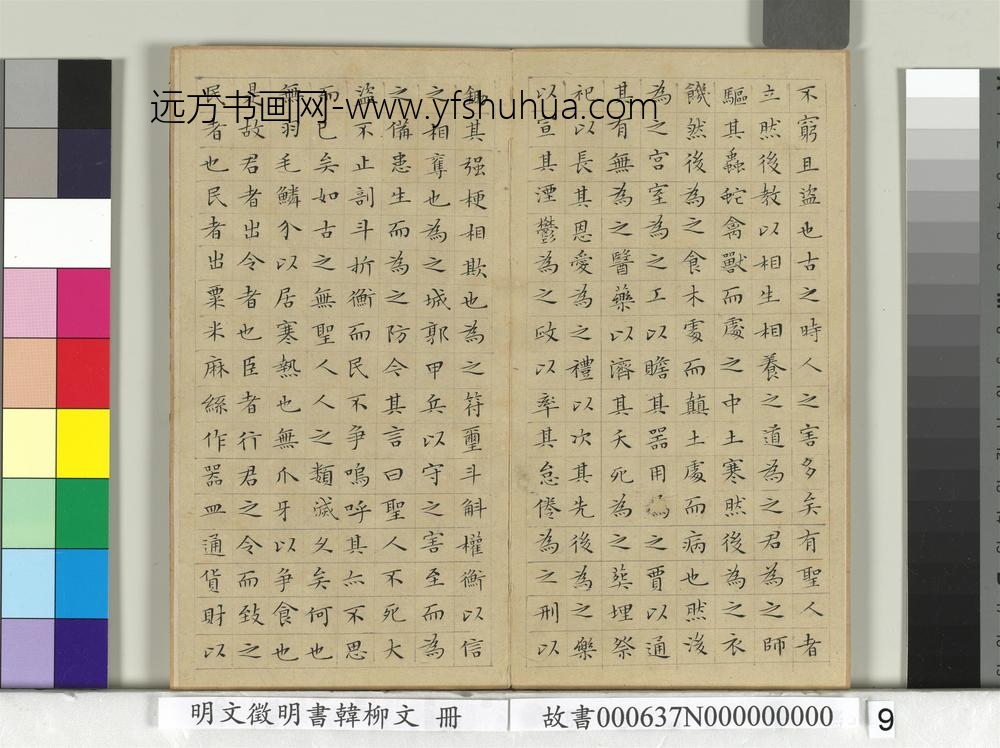 不窮且盜也古之時人之害多矣有聖人者
立然後教以相生相養之道為之君為之師
驅其蟲蛇禽獸而處之中土寒然後為之衣
饑然後為之食木處而顛土處而病也然後
為之宮室為之工以贍其器用為之賈以通
其有無為之醫藥以濟其夭死為之葬埋祭
祀以長其恩愛為之禮以次其先後為之樂
以宣其湮鬱為之政以率其怠倦為之刑以
鋤其强梗相欺也為之符璽斗斛權衡以信
之相奪也為之城郭甲兵以守之害至而為
之備患生而為之防今其言曰聖人不死大
盜不止剖斗折衡而民不爭嗚呼其亦不思
而已矣如古之無聖人人之類滅久矣何也
無羽毛鱗介以居寒熱也無爪牙以爭食也
是故君者出令者也臣者行君之令而致之
民者也民者出粟米麻絲作器皿通貨財以
远方书画网-www.yfshuhua.com
明文徵明書韓柳文 冊
故書000637N000000000
9